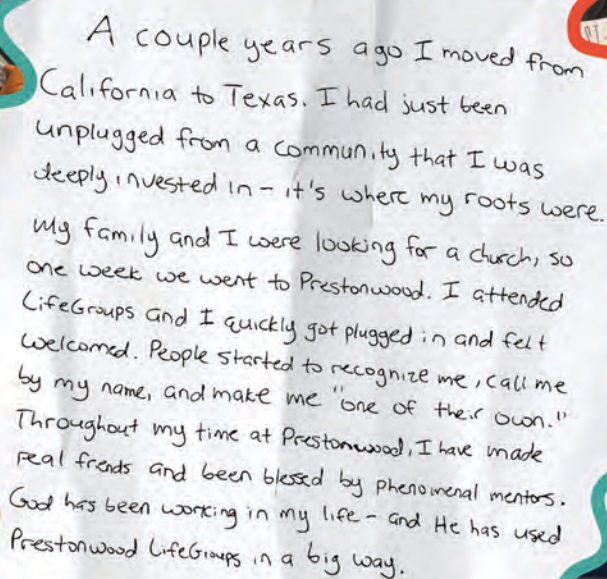 A couple years ago I moved from
California to Texas. I had just been
unplugged from a community that I was
deeply invested in - it's where my roots were.
My family and I were looking for a church, so
one week we went to Prestonwood. I attended
LifeGroups and I quickly got plugged in and felt
welcomed. People started to recognize me, call me
by my name, and make me "one of their own."
Throughout my time at Prestonwood, I have made
real friends and been blessed by phenomenal mentors.
God has been working in my life - and He has used
Prestonwood LifeGroups in a big way.